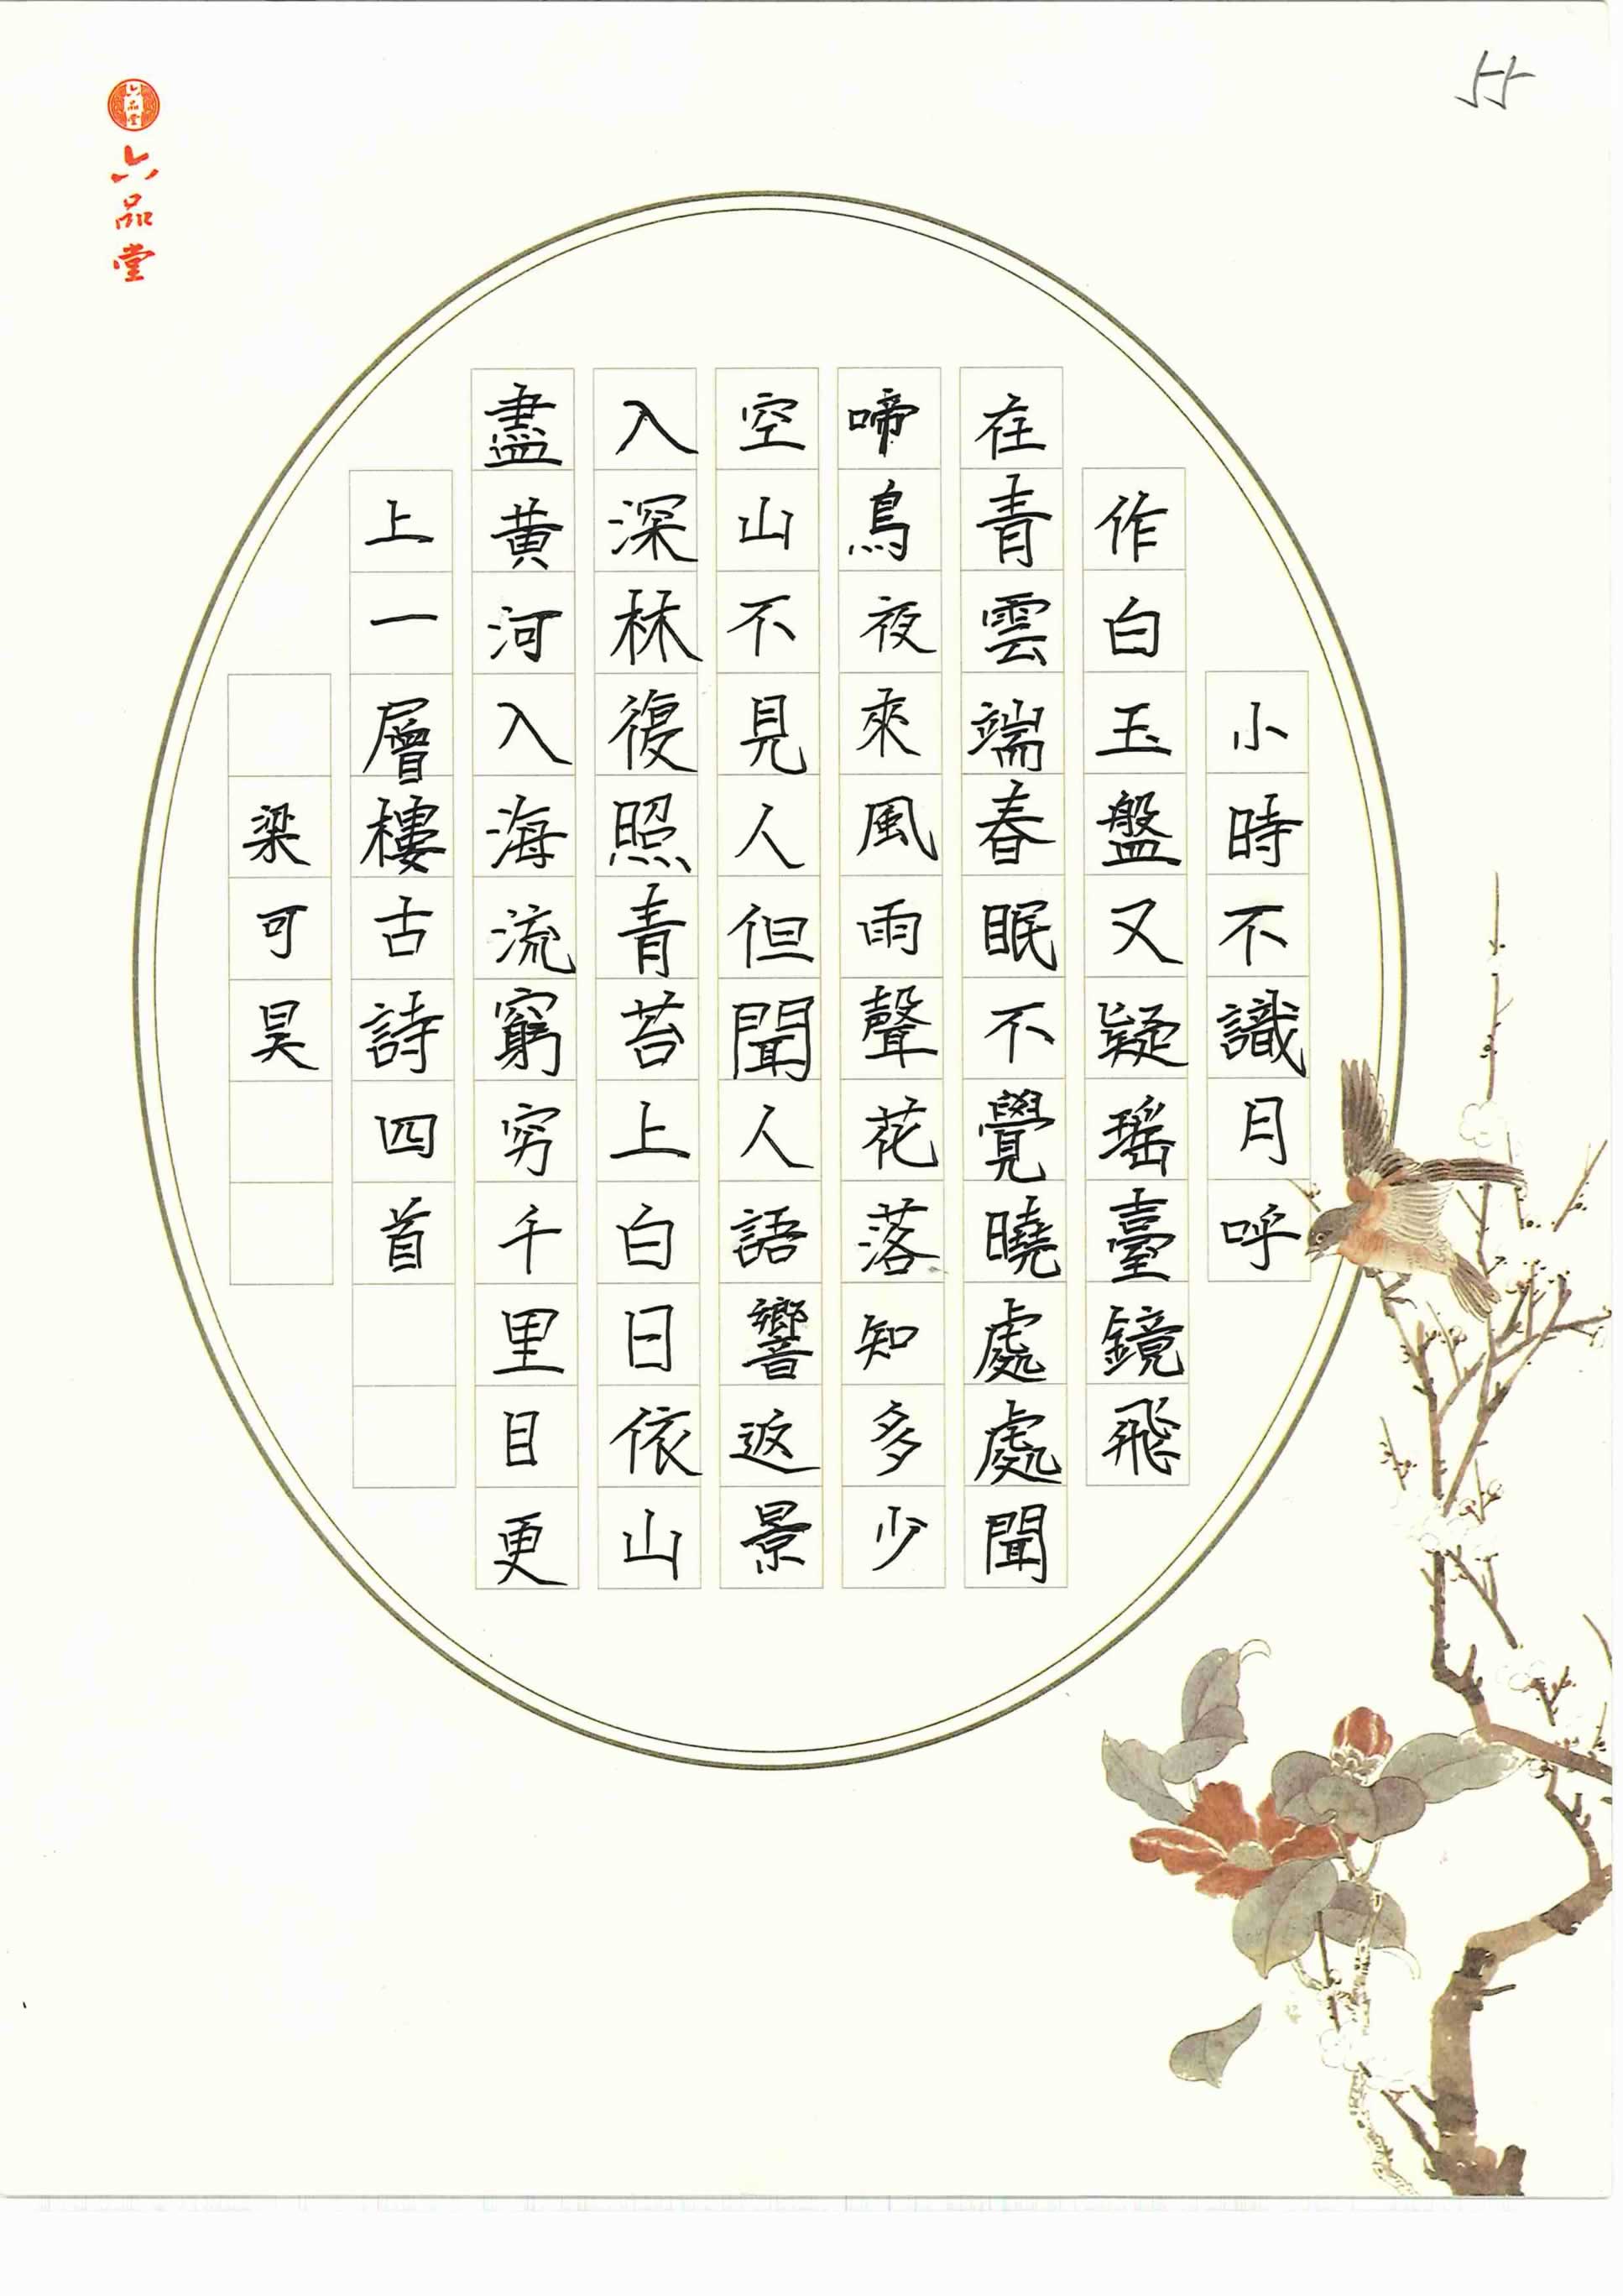 小時不識月呼
作白玉盤又疑瑤臺鏡飛
在青雲端春眠不覺曉處處聞
啼鳥夜來風雨聲花落知多少
空山不見人但聞人語響返景
入深林復照青苔上白日依山
盡黃河入海流窮穷千里目更
上一層樓古詩四首
梁可昊
六品堂
六品堂